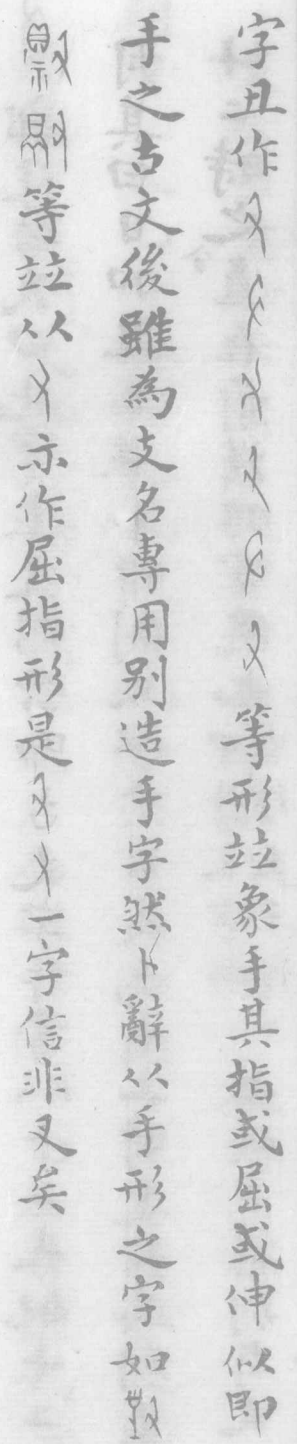 字丑作等形竝象手其指或屈或伸似即
手之古文後雖為支名專用別造手字然卜辭从手形之字如
等竝从亦作屈指形是一字信非叉矣